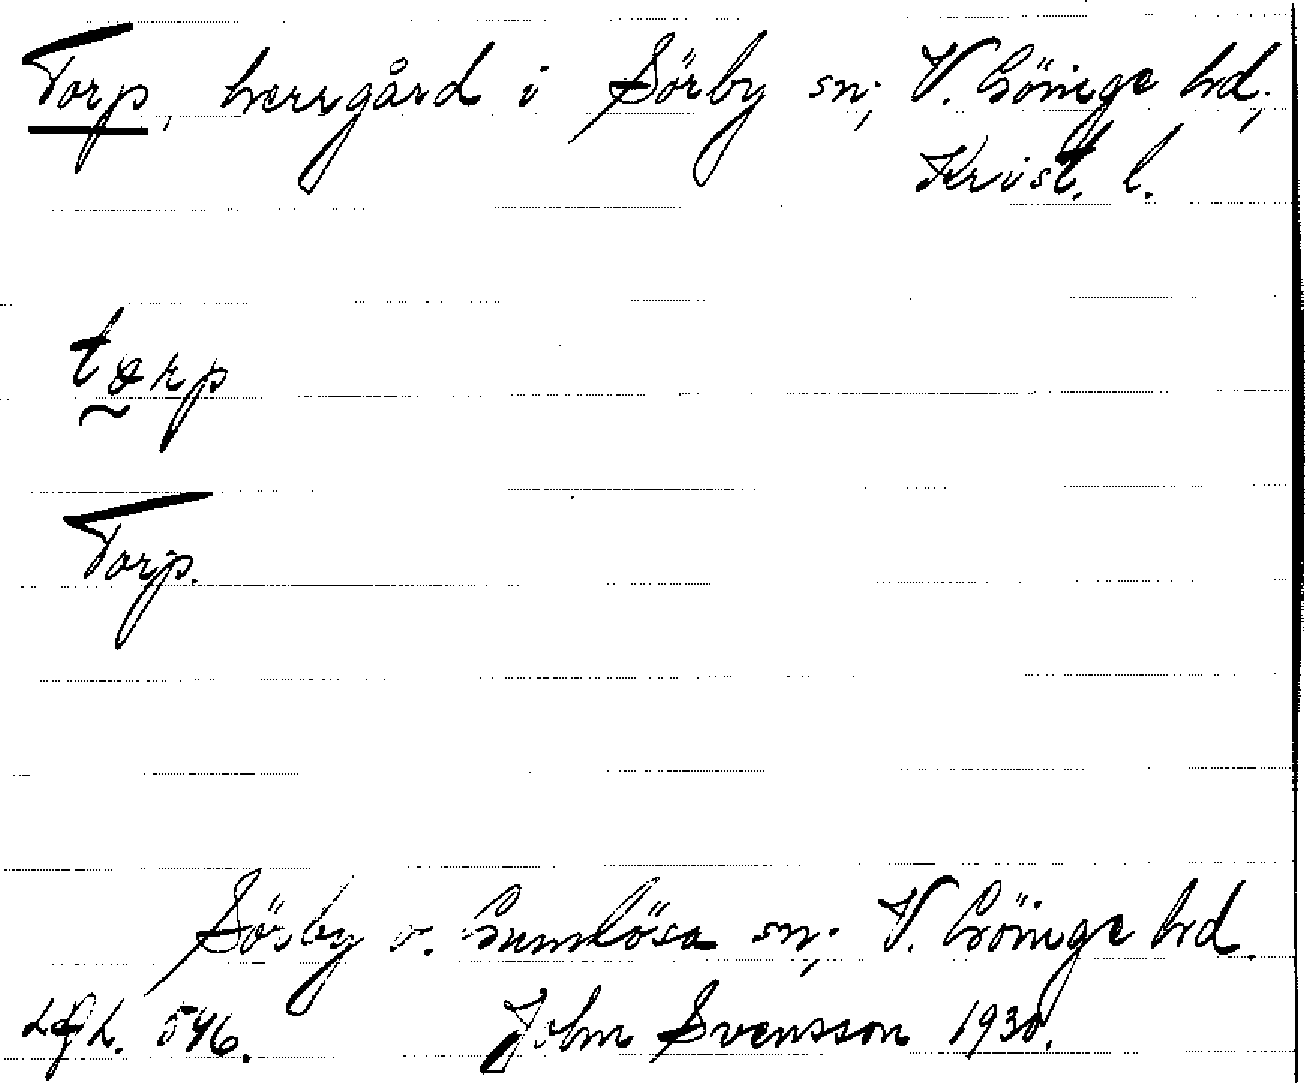 Torp, herrgård i Sörby sn; V. Göinge hd;
Krist. l.
tɷrp
Torp.
Sörby o. Gumlösa sn; V. Göinge hd.
546. John Svensson 1930.